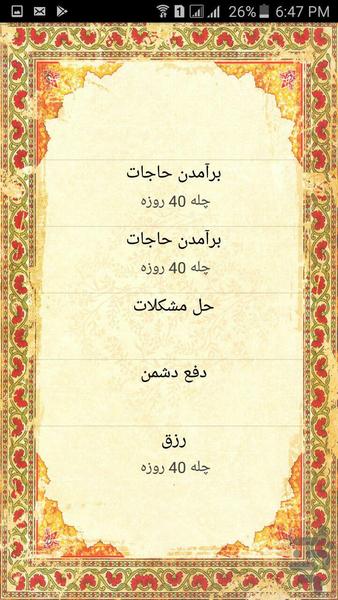 26% 6:47 PM
برآمدن حاجات
چله 40 روزه
برآمدن حاجات
چله 40 روزه
حل مشکلات
دفع دشمن
رزق
چله 40 روزه